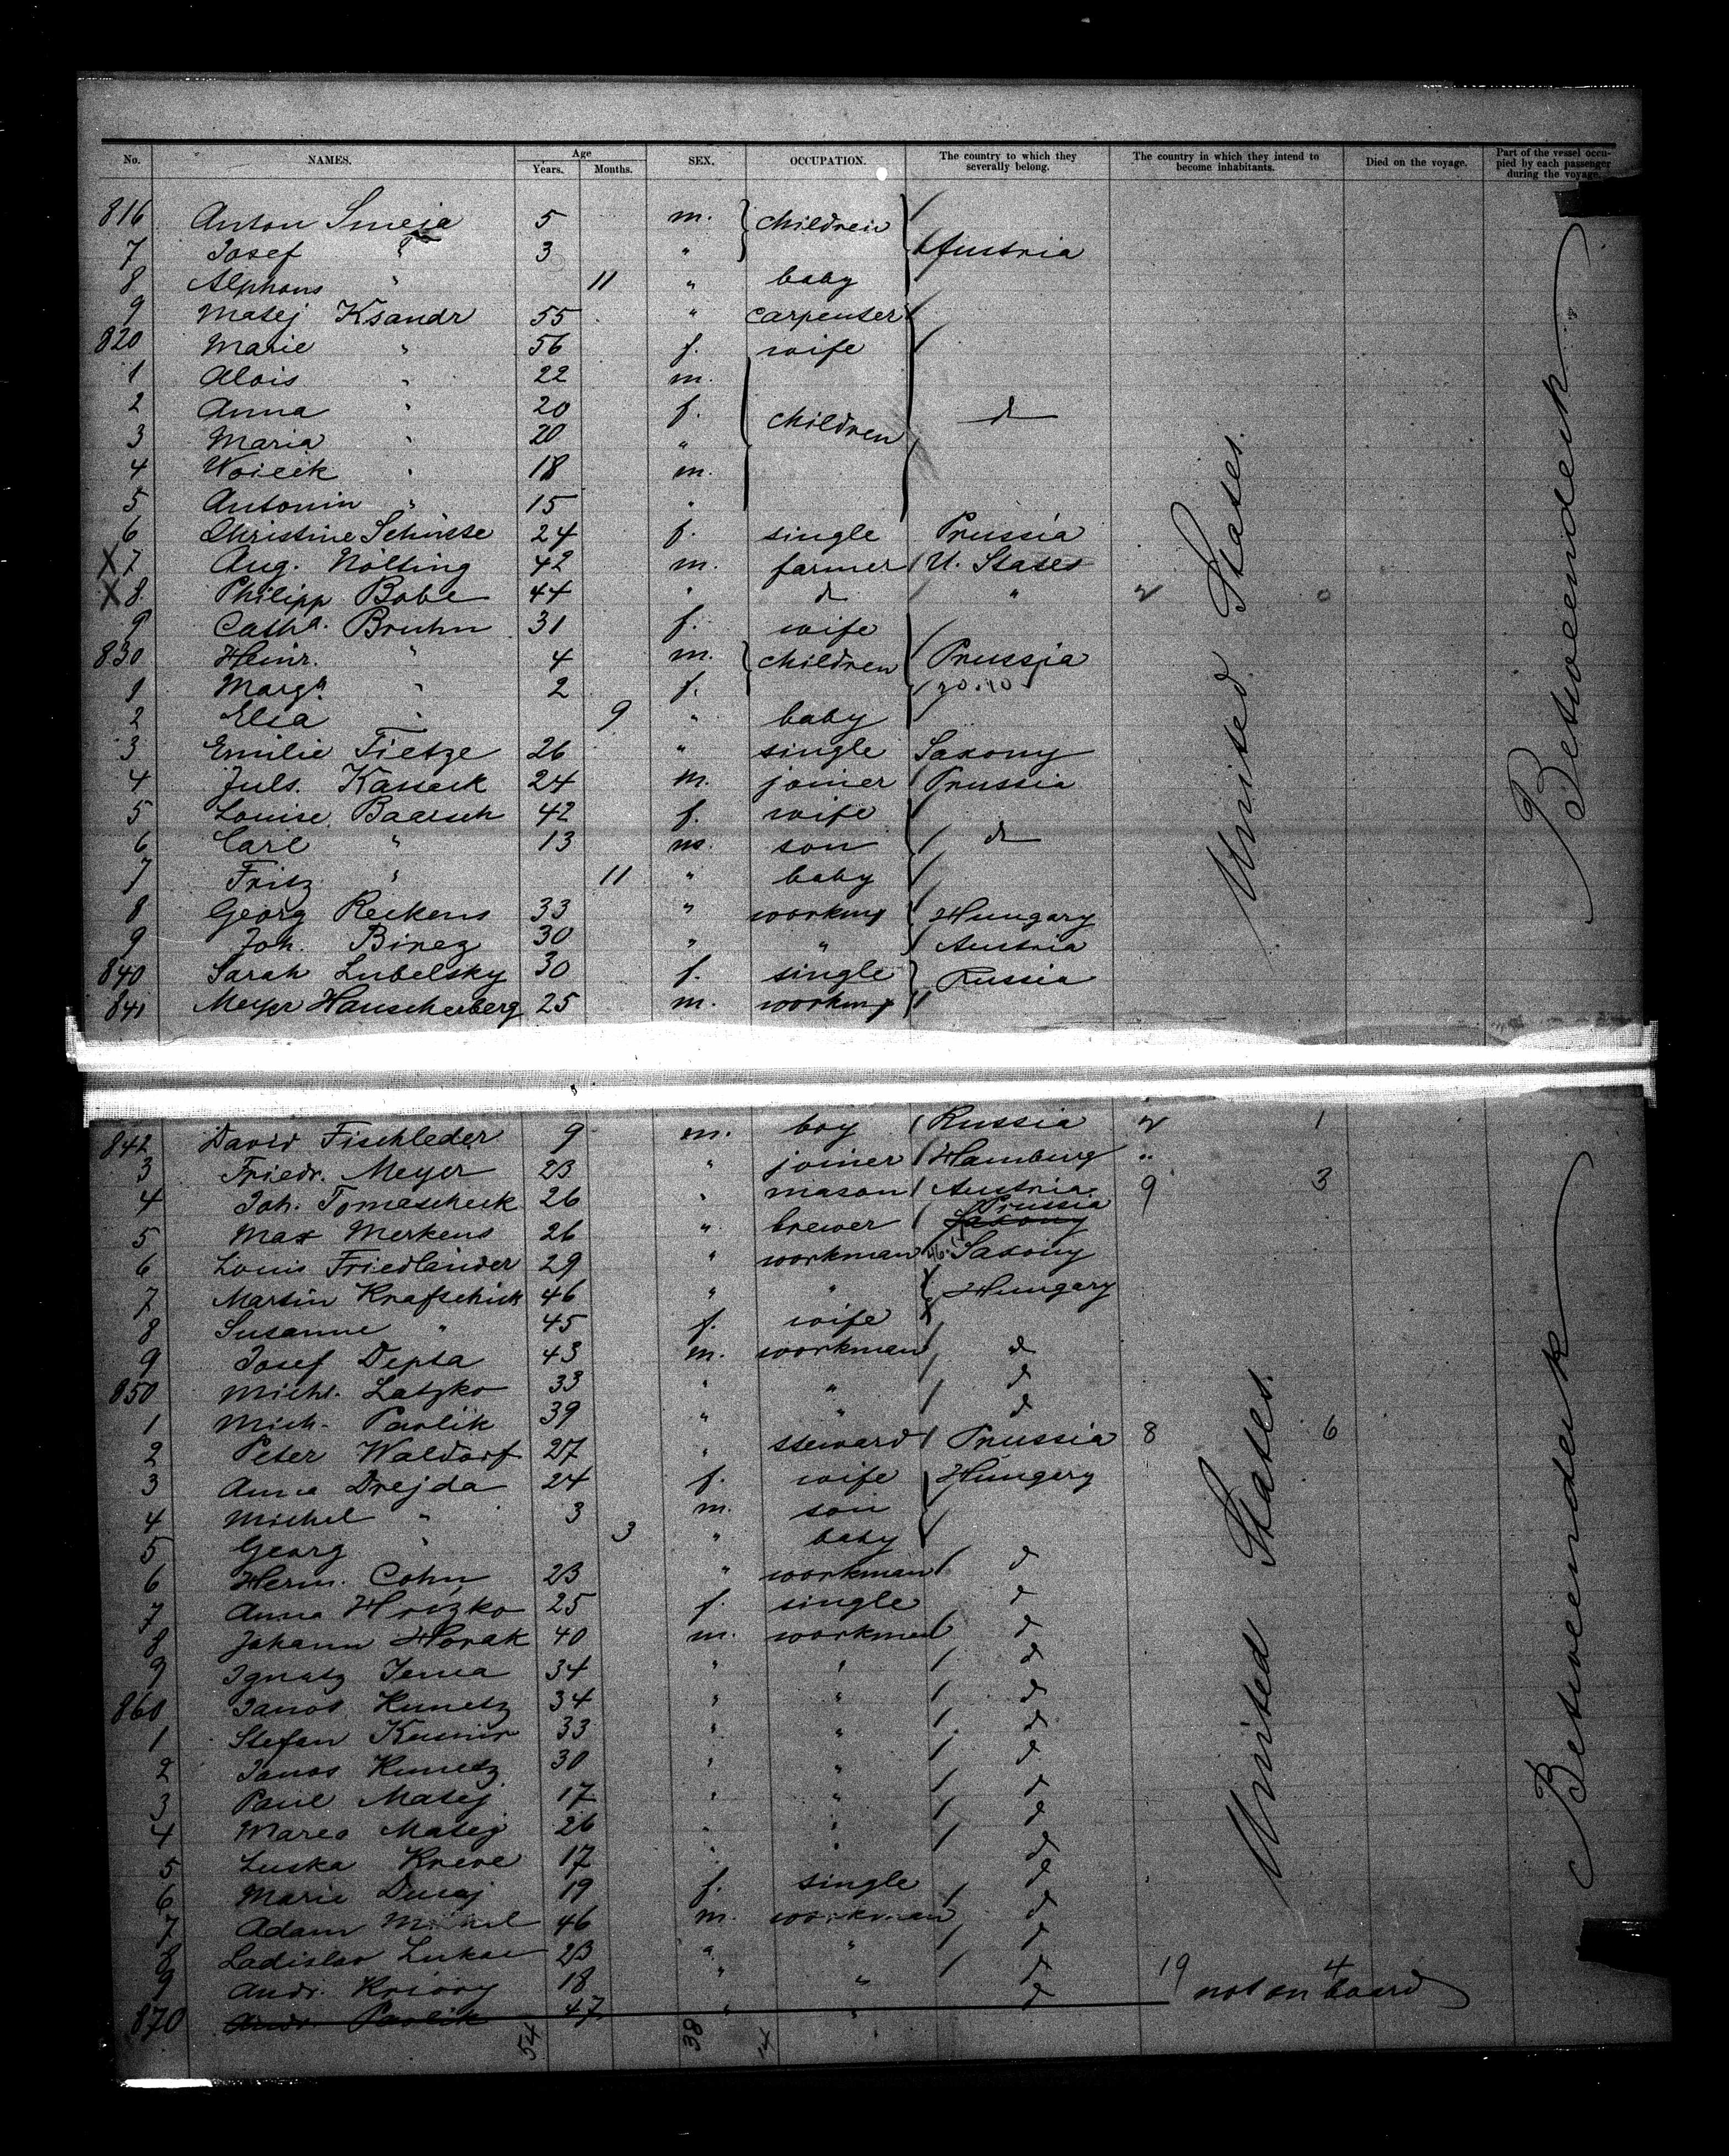 No. NAMES. Age Years. Months. SEX. OCCUPATION. The country to which they severally belong. The country in which they intend to become inhabitants. Died on the voyage. Part of the vessel occupied by each passenger during the voyage.
816 Anton Smeja 5 m. children
7 Josef " 3 " Austria
8 Alphons " 11 " baby
9 Matej Ksandr 55 " carpenter
820 Marie " 56 f. wife
1 Alois " 22 m.
2 Anna " 20 f. children d
3 Maria " 20 "
4 Woicik " 18 m.
5 Antonin " 15 "
6 Christine Schütte 24 f. single Prussia
X 7 Aug. Nölting 42 m. farmer U. States
X 8 Philipp Bobe 44 " d "
9 Catha. Bruhn 31 f. wife
830 Heinr. " 4 m. children Prussia
1 Marga. " 2 f.
2 Elsa " 9 " baby
3 Emilie Tietze 26 " single Saxony
4 Juls. Kassack 24 m. joiner Prussia
5 Louise Baarsch 42 f. wife
6 Carl " 13 m. son d
7 Fritz " 11 " baby
8 Georg Reckens 33 " workm Hungary
9 Joh. Binez 30 " " Austria
840 Sarah Lubelsky 30 f. single Russia
841 Meyer Hauscherberg 25 m. workm
United States.
Betweendeck
842 David Fischleder 9 m. boy Russia 1
3 Friedr. Meyer 23 " joiner Hamburg "
4 Joh. Tomascheck 26 " mason Austria 9 3
5 Max Merkens 26 " brewer Saxony Prussia
6 Louis Friedländer 29 " workman Saxony
7 Martin Krafschick 46 " " Hungary
8 Susanne " 45 f. wife
9 Josef Depta 43 m. workman d
850 Michl. Latzko 33 " " d
1 Mich. Pavlik 39 " " d
2 Peter Waldorf 27 " steward Prussia 8 6
3 Anna Drejda 24 f. wife Hungary
4 Michel " 3 m. son
5 Georg " 3 " baby
6 Herm. Cohn 23 " workman d
7 Anna Hrizko 25 f. single d
8 Johann Horak 40 m. workman d
9 Ignatz Jema 34 " " d
860 Janos Kunetz 34 " " d
1 Stefan Kusnir 33 " " d
2 Janos Kunetz 30 " " d
3 Paul Matej 17 " " d
4 Marco Matej 26 " " d
5 Luska Kreve 17 " " d
6 Marie Ducaj 19 f. single d
7 Adam 46 m. workman d
8 Ladislav Lukac 23 " " d
9 Andr. 18 " " d 19 4
870 Andr. Pavlik 47 " " d not on board
54 38 14
United States.
Betweendeck